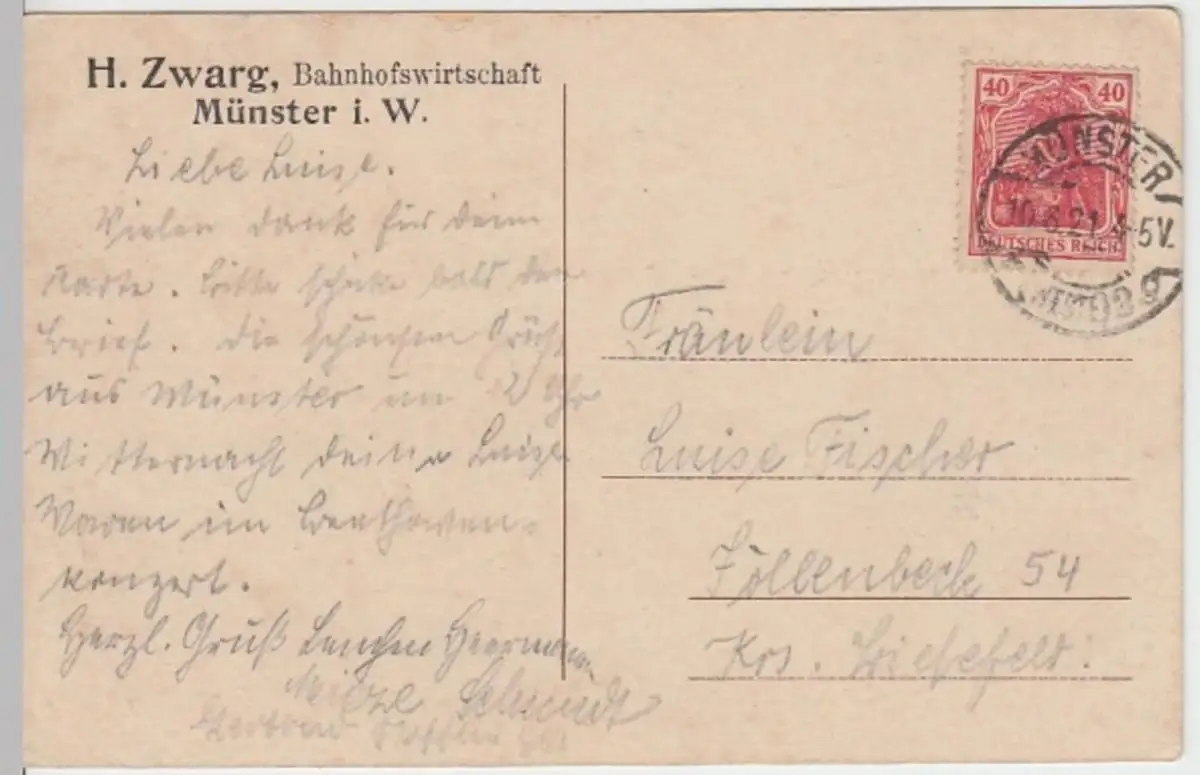 H. Zwarg, Bahnhofswirtschaft
Münster i. W.
Liebe Luise.
Vielen Dank für deine
Karte. Bitte schicke bald den
Brief. Die schönsten Grüße
aus Münster um 2 Uhr
Mitternacht deine Luise
Waren im Beethoven-
konzert.
Herzl. Gruß Lenchen Heermann
Mieze Schmidt
40 40
DEUTSCHES REICH
MÜNSTER
10.6.21. 4-5V.
(WESTF)
Fräulein
Luise Fischer
Jöllenbeck 54
Krs. Bielefeld.